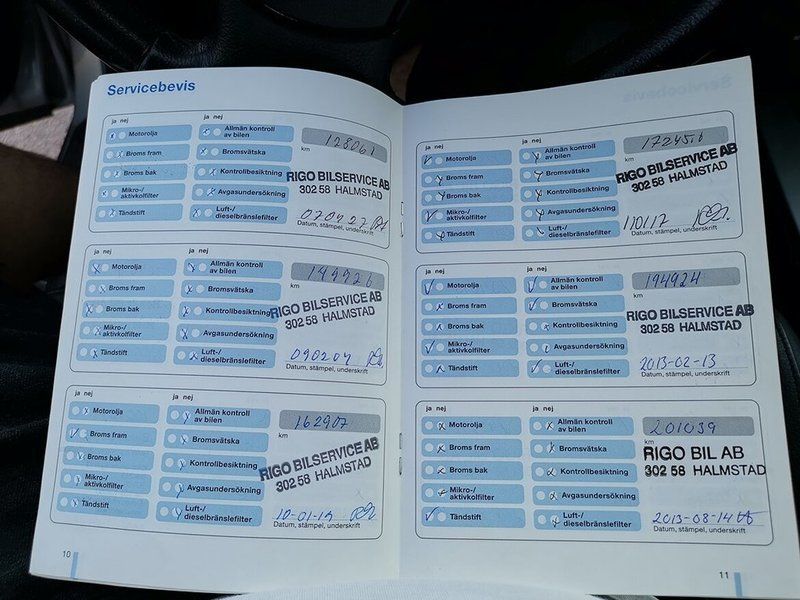 Servicebevis
ja nej
ja nej
Motorolja
Broms fram
Broms bak
Mikro-/
aktivkolfilter
Tändstift
Allmän kontroll
av bilen
Bromsvätska
Kontrollbesiktning
Avgasundersökning
Luft-/
dieselbränslefilter
128061
km
RIGO BILSERVICE AB
302 58 HALMSTAD
070427
Datum, stämpel, underskrift
ja nej
ja nej
Motorolja
Broms fram
Broms bak
Mikro-/
aktivkolfilter
Tändstift
Allmän kontroll
av bilen
Bromsvätska
Kontrollbesiktning
Avgasundersökning
Luft-/
dieselbränslefilter
149926
km
RIGO BILSERVICE AB
302 58 HALMSTAD
090204
Datum, stämpel, underskrift
ja nej
ja nej
Motorolja
Broms fram
Broms bak
Mikro-/
aktivkolfilter
Tändstift
Allmän kontroll
av bilen
Bromsvätska
Kontrollbesiktning
Avgasundersökning
Luft-/
dieselbränslefilter
162907
km
RIGO BILSERVICE AB
302 58 HALMSTAD
Datum, stämpel, underskrift
10
ja nej
ja nej
Motorolja
Broms fram
Broms bak
Mikro-/
aktivkolfilter
Tändstift
Allmän kontroll
av bilen
Bromsvätska
Kontrollbesiktning
Avgasundersökning
Luft-/
dieselbränslefilter
km
RIGO BILSERVICE AB
302 58 HALMSTAD
110117
Datum, stämpel, underskrift
ja nej
ja nej
Motorolja
Broms fram
Broms bak
Mikro-/
aktivkolfilter
Tändstift
Allmän kontroll
av bilen
Bromsvätska
Kontrollbesiktning
Avgasundersökning
Luft-/
dieselbränslefilter
194924
km
RIGO BILSERVICE AB
302 58 HALMSTAD
2013-02-13
Datum, stämpel, underskrift
ja nej
ja nej
Motorolja
Broms fram
Broms bak
Mikro-/
aktivkolfilter
Tändstift
Allmän kontroll
av bilen
Bromsvätska
Kontrollbesiktning
Avgasundersökning
Luft-/
dieselbränslefilter
201039
km
RIGO BIL AB
302 58 HALMSTAD
2013-08-14
Datum, stämpel, underskrift
11